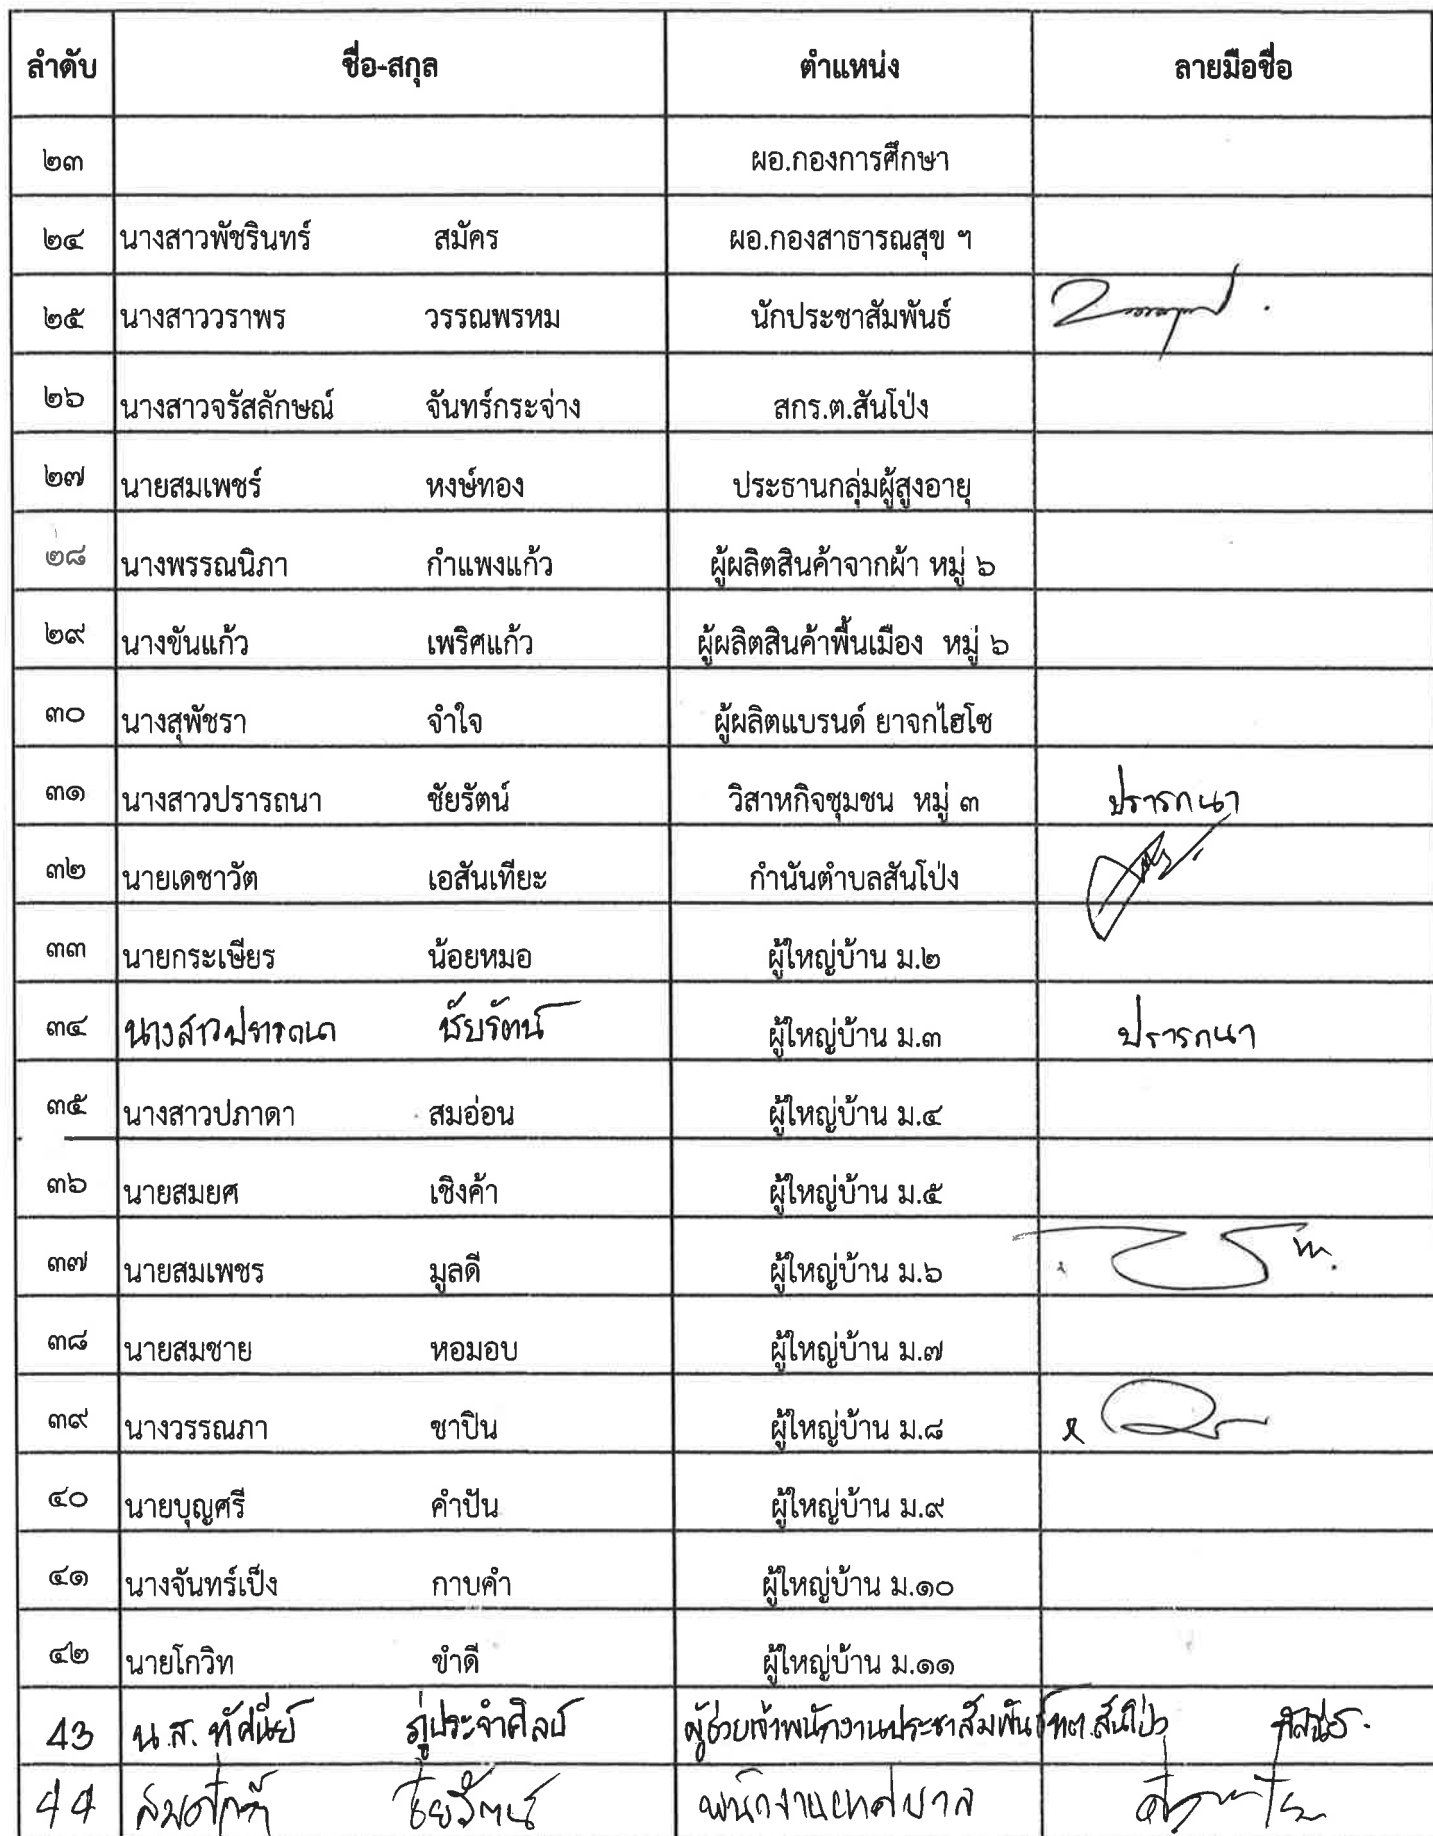 ลำดับ ชื่อ-สกุล ตำแหน่ง ลายมือชื่อ
๒๓ ผอ.กองการศึกษา
๒๔ นางสาวพัชรินทร์ สมัคร ผอ.กองสาธารณสุข ฯ
๒๕ นางสาววราพร วรรณพรหม นักประชาสัมพันธ์
๒๖ นางสาวจรัสลักษณ์ จันทร์กระจ่าง สกร.ต.สันโป่ง
๒๗ นายสมเพชร์ หงษ์ทอง ประธานกลุ่มผู้สูงอายุ
๒๘ นางพรรณนิภา กำแพงแก้ว ผู้ผลิตสินค้าจากผ้า หมู่ ๖
๒๙ นางขันแก้ว เพริศแก้ว ผู้ผลิตสินค้าพื้นเมือง หมู่ ๖
๓๐ นางสุพัชรา จำใจ ผู้ผลิตแบรนด์ ยาจกไฮโซ
๓๑ นางสาวปรารถนา ชัยรัตน์ วิสาหกิจชุมชน หมู่ ๓ ปรารถนา
๓๒ นายเดชาวัต เอสันเทียะ กำนันตำบลสันโป่ง
๓๓ นายกระเษียร น้อยหมอ ผู้ใหญ่บ้าน ม.๒
๓๔ นางสาวปรารถนา ชัยรัตน์ ผู้ใหญ่บ้าน ม.๓ ปรารถนา
๓๕ นางสาวปภาดา สมอ่อน ผู้ใหญ่บ้าน ม.๔
๓๖ นายสมยศ เชิงค้า ผู้ใหญ่บ้าน ม.๕
๓๗ นายสมเพชร มูลดี ผู้ใหญ่บ้าน ม.๖
๓๘ นายสมชาย หอมอบ ผู้ใหญ่บ้าน ม.๗
๓๙ นางวรรณภา ชาปิน ผู้ใหญ่บ้าน ม.๘
๔๐ นายบุญศรี คำปัน ผู้ใหญ่บ้าน ม.๙
๔๑ นางจันทร์เป็ง กาบคำ ผู้ใหญ่บ้าน ม.๑๐
๔๒ นายโกวิท ขำดี ผู้ใหญ่บ้าน ม.๑๑
43 น.ส. ทัศนีย์ ภู่ประจำศิลป์ ผู้ช่วยเจ้าพนักงานประชาสัมพันธ์ ทต.สันโป่ง
44 ชัยรัตน์ พนักงานเทศบาล